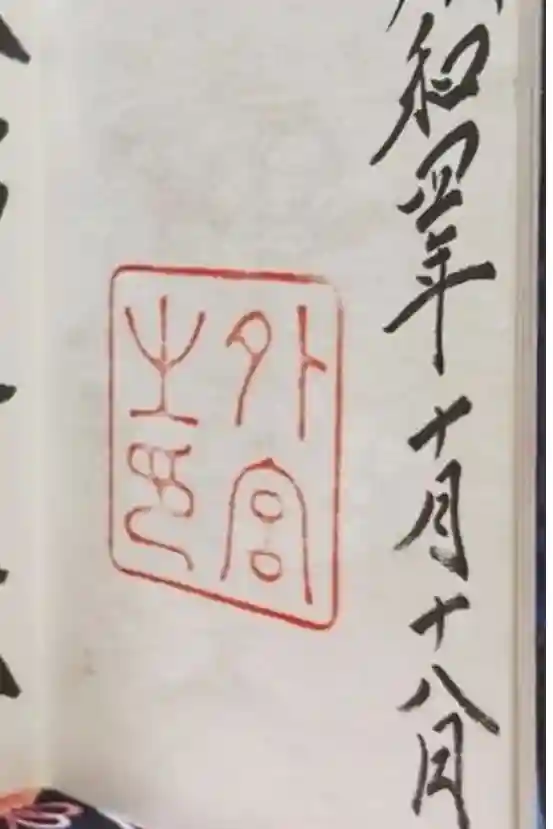 和四年十月十八日
外宮
之印